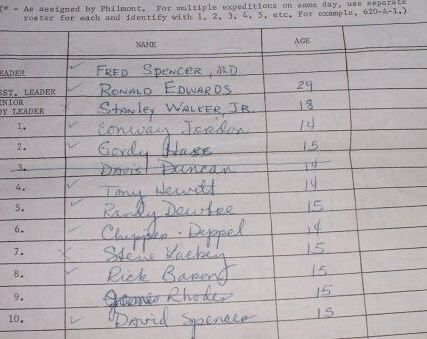 (* - As assigned by Philmont. For multiple expeditions on same day, use separate
roster for each and identify with 1, 2, 3, 4, 5, etc. For example, 620-A-1.)
NAME AGE
EADER FRED SPENCER, MD
SST. LEADER RONALD EDWARDS 29
ENIOR
OY LEADER STANLEY WALKER, JR. 18
1. Conway Jordan 14
2. Gordy Hass 15
3. David Duncan 14
4. Tony Hewitt 14
5. Randy 15
6. Deppel 14
7. Steve Lackey 15
8. Rick Barony 15
9. James Rhodes 15
10. David Spencer 15